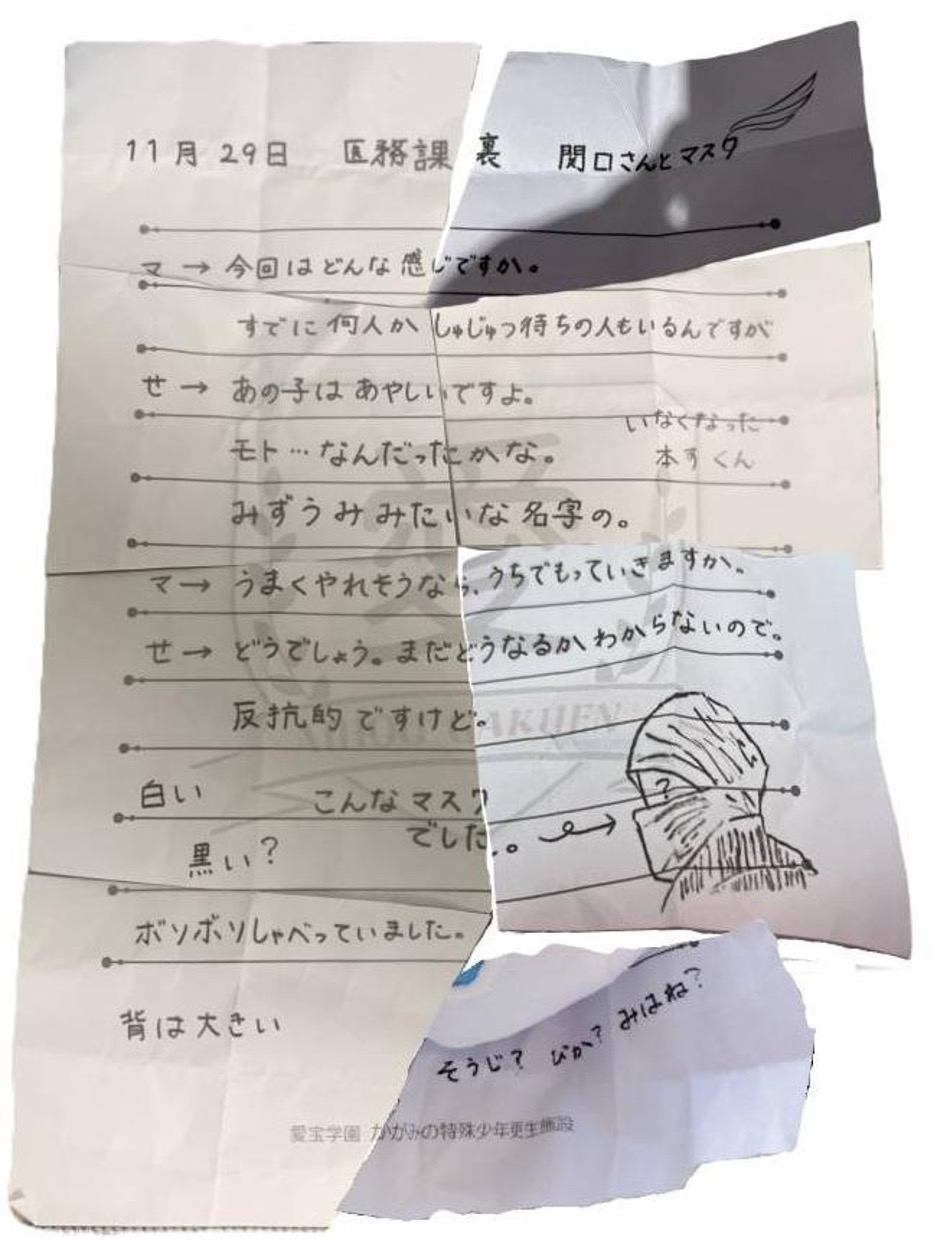 11月29日　医務課裏　関口さんとマスク
マ→今回はどんな感じですか。
すでに何人かしゅじゅつ待ちの人もいるんですが
せ→あの子はあやしいですよ。
いなくなった
モト…なんだったかな。
本すくん
みずうみみたいな名字の。
マ→うまくやれそうなら、うちでもっていきますか。
せ→どうでしょう。まだどうなるかわからないので。
反抗的ですけど。
白い
こんなマスク
でした。。→
?
黒い?
ボソボソしゃべっていました。
背は大きい
そうじ? びか? みはね?
愛宝学園 かがみの特殊少年更生施設